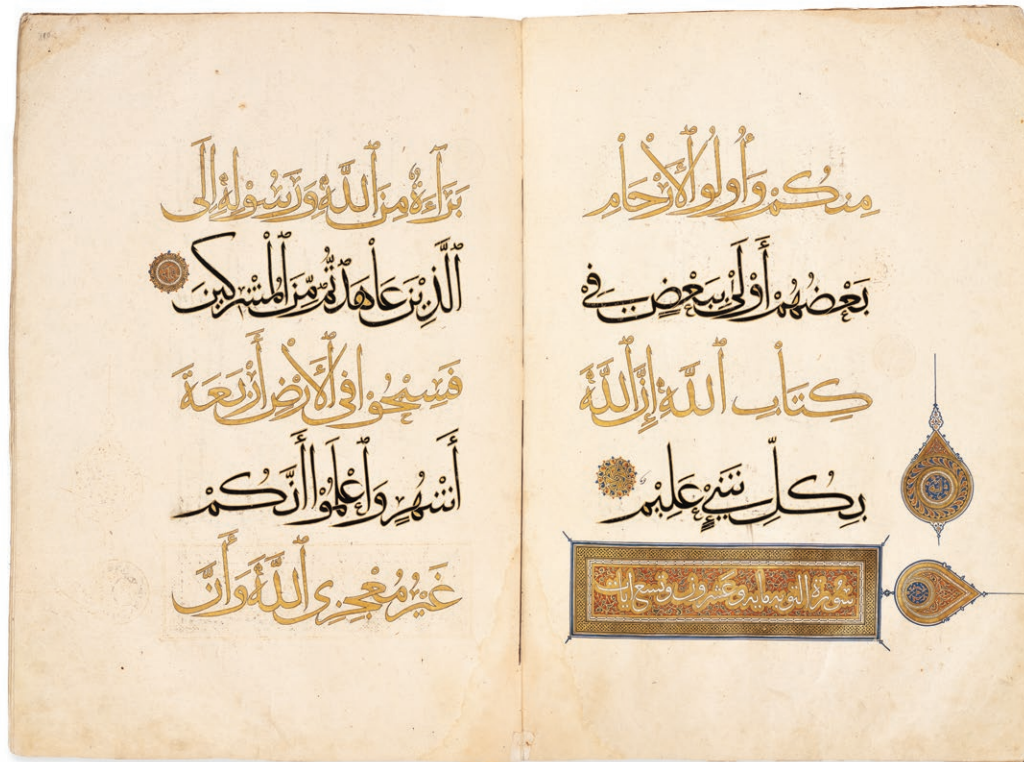 مِنكُمْ وَأُولُو الْأَرْحَامِ
بَعْضُهُمْ أَوْلَىٰ بِبَعْضٍ فِي
كِتَابِ اللَّهِ إِنَّ اللَّهَ
بِكُلِّ شَيْءٍ عَلِيمٌ
سورة التوبة مائة وعشرون وتسع آيات
بَرَآءَةٌ مِنَ اللَّهِ وَرَسُولِهِ إِلَى
الَّذِينَ عَاهَدْتُمْ مِنَ الْمُشْرِكِينَ
فَسِيحُوا فِي الْأَرْضِ أَرْبَعَةَ
أَشْهُرٍ وَاعْلَمُوا أَنَّكُمْ
غَيْرُ مُعْجِزِي اللَّهِ وَأَنَّ